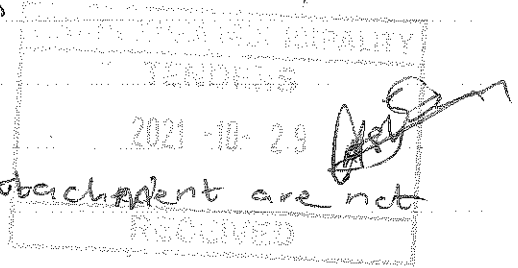 MUNICIPALITY
TENDERS
2021 -10- 29
attachment are not
RECEIVED